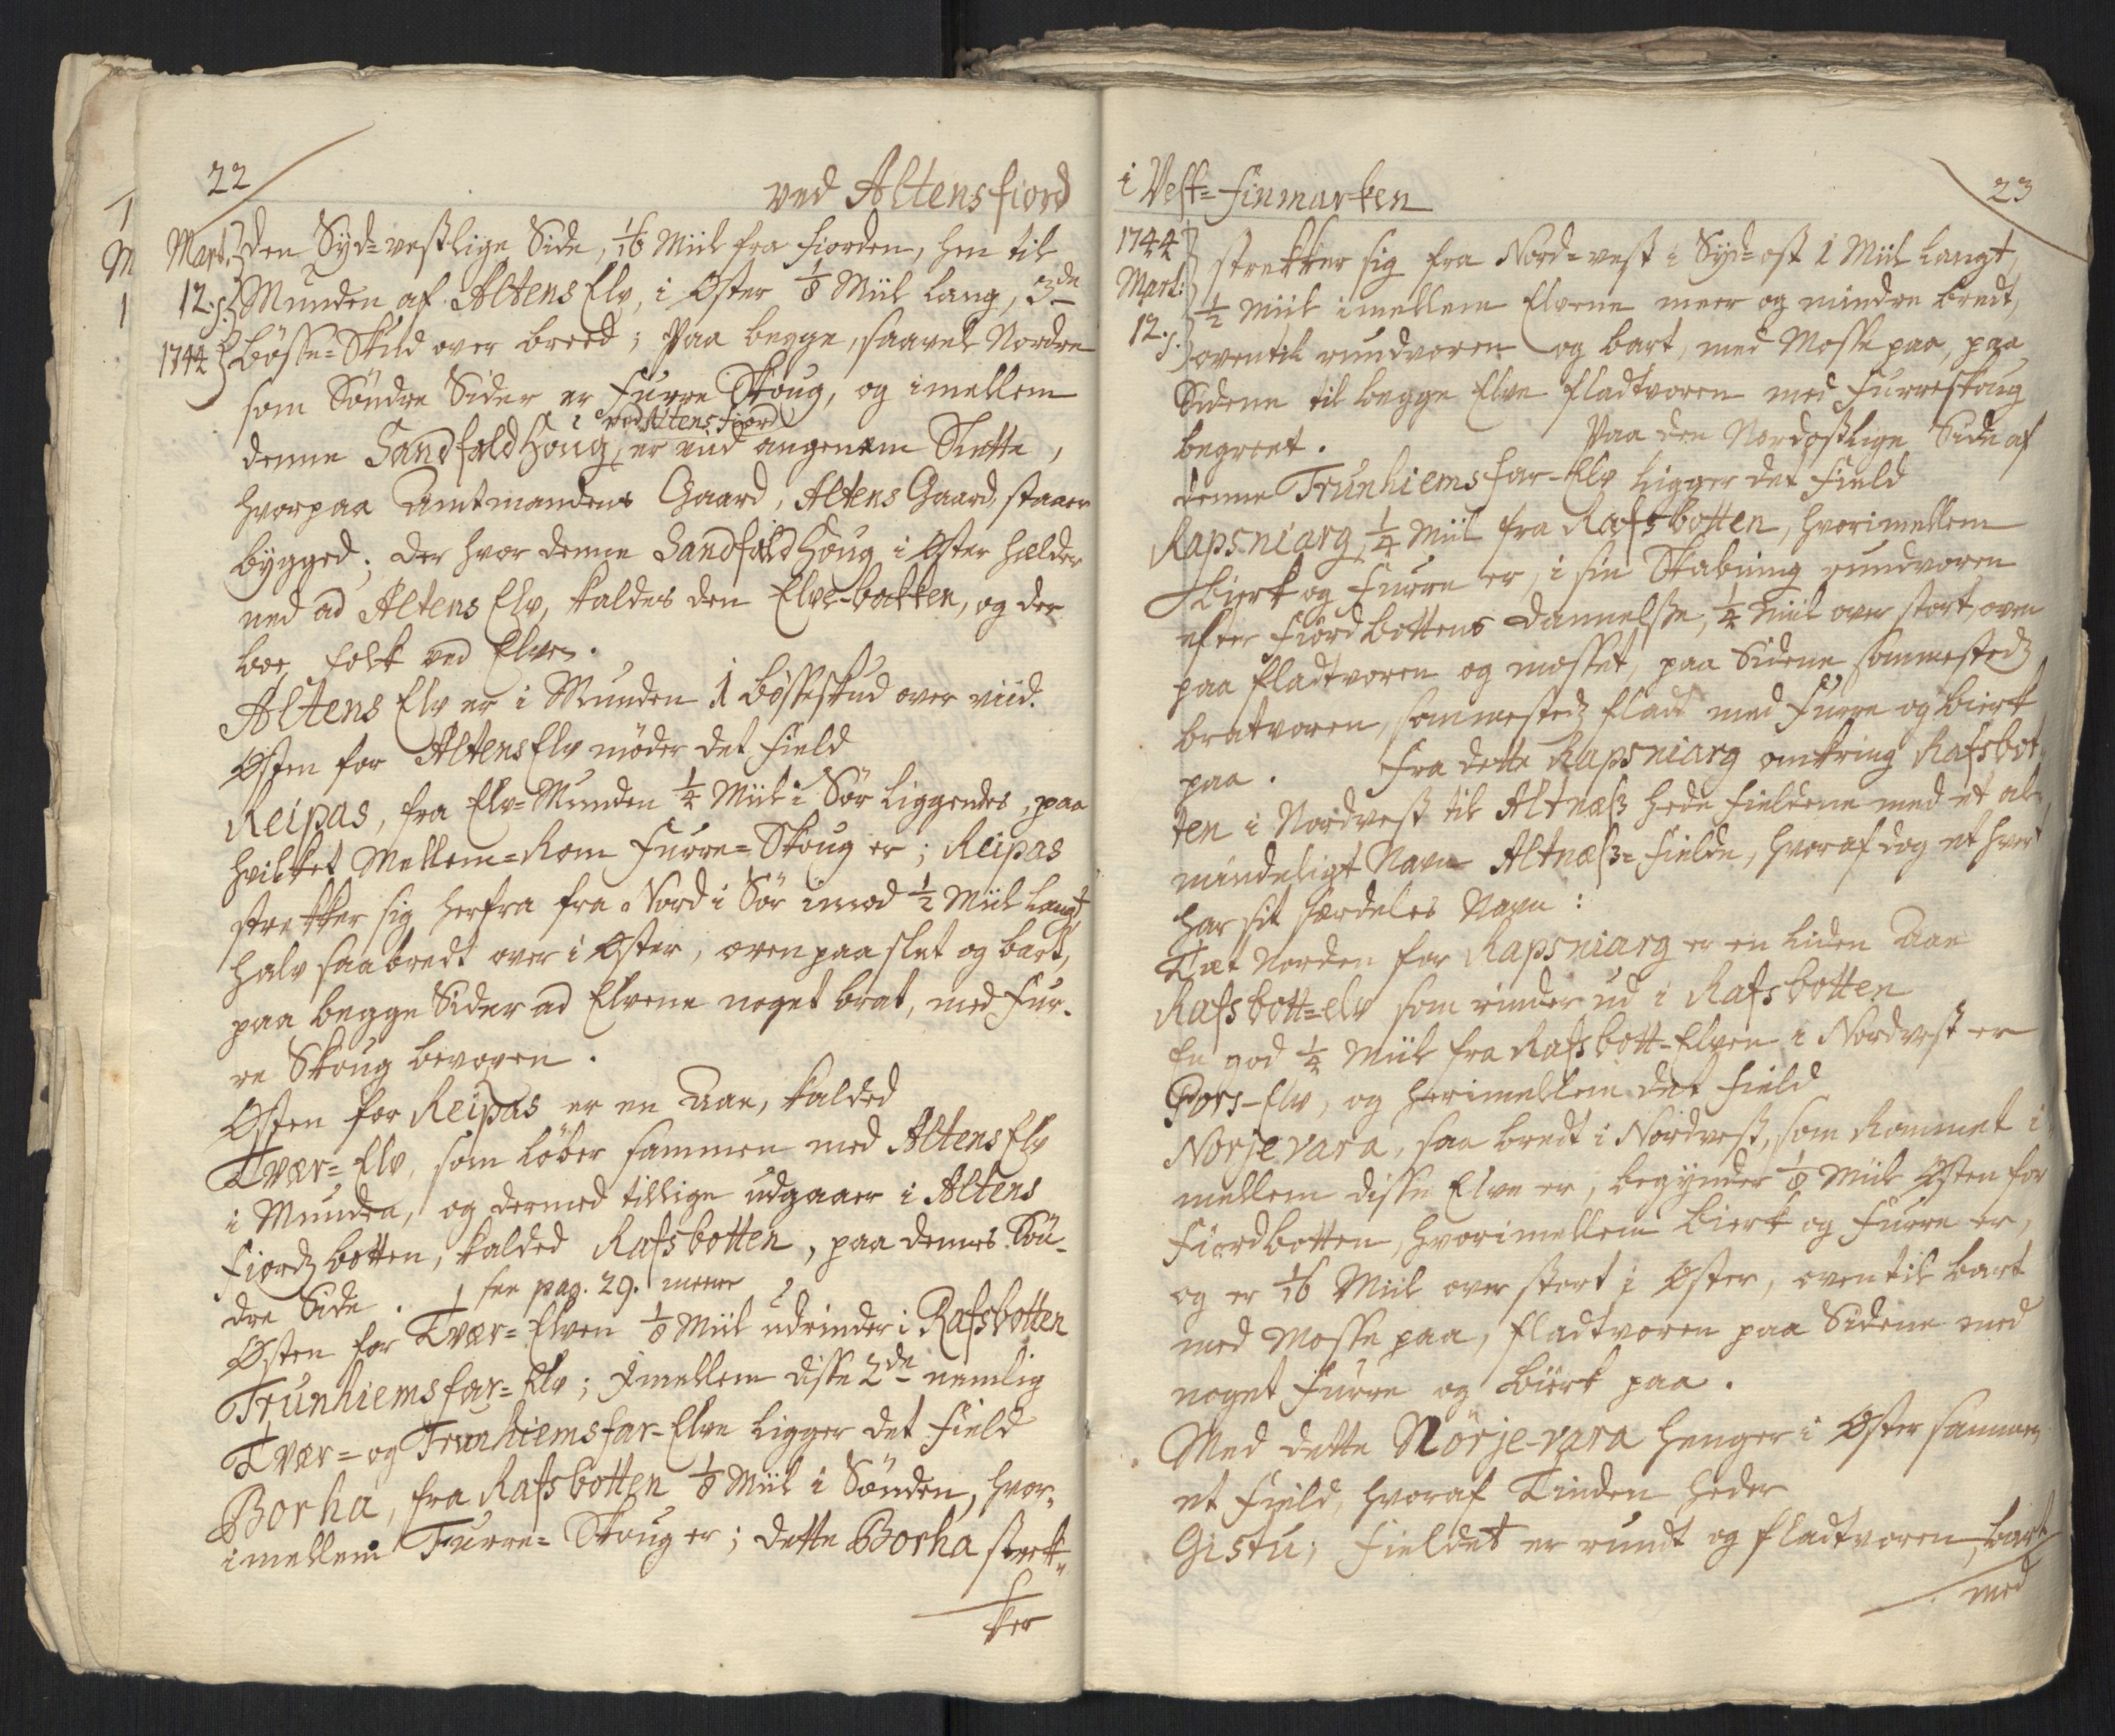 22
ved Altens fiord
Mart. den Syd-vestlige Side, 1/16 Miil fra fiorden, hen til
12. s. Munden af Altens Elv, i Øster 1/8 Miil lang, 3de
1744 bösse-Skud over breed; Paa begge, saavel Nordre
som Söndre Sider er Furre Skoug, og imellem
ved Altens fiord
denne Sandfald Houg, er een angenem Slette,
hvorpaa Amtmandens Gaard, Altens Gaard, staaer
bygged; der hvor denne Sandfald Houg i Øster helder
ned ad Altens Elv, kaldes den Elve-bakken, og der
boe, folk ved Elven.
Altens Elv er i Munden 1 bösseskud over viid.
Østen for Altens Elv möder det Field
Reipas, fra Elv-Munden 1/4 Miil i Sör liggendes, paa
hvilket Mellem-Rom Furre-Skoug er; Reipas
strekker sig herfra fra Nord i Sör imod 1/2 Miil langt,
halv saa bredt over i Øster, oven paa slet og bart,
paa begge Sider ad Elvene noget brat, med Fur-
re Skoug bevoxen.
Østen for Reipas er en Aae, kalded
Tvær-Elv, som löber sammen med Altens Elv
i Munden, og dermed tillige udgaaer i Altens
Fiords botten, kalded Rafsbotten, paa dennes Sön-
dre Side. see pag. 29. meere
Østen for Tvær-Elven 1/8 Miil udrinder i Rafsbotten
Trunhiemsfar-Elv; Imellem disse 2de nemlig
Tvær- og Trunhiemsfar-Elve ligger det Field
Borha, fra Rafsbotten 1/8 Miil i Sönden, hvor-
imellem Furre-Skoug er; dette Borha strek-
ker
i Vest-Finmarken
23
1744 strekker sig fra Nord-vest i Syd-ost 1 Miil langt,
Mart. 1/2 Miil imellem Elvene meer og mindre bredt,
12. s. oventil rundvoren og bart, med Mosse paa, paa
Sidene til begge Elve fladtvoren med Furreskoug
begroet. Paa den Nordostlige Side af
denne Trunhiemsfar-Elv ligger det Field
Rapsniarg, 1/4 Miil fra Rafsbotten, hvorimellem
Bierk og Furre er, i sin Skabning rundvoren
efter Fiordbottens Dannelse, 1/4 Miil over stort, oven
paa fladtvoren og mosset, paa Sidene sommesteds
bratvoren, sommesteds fladt med Furre og Bierk
paa. Fra dette Rapsniarg omkring Rafsbot-
ten i Nordvest til Altnæss hede Fieldene med et al-
mindeligt Navn Altnæss-Fielde, hvoraf dog et hvert
har sit særdeles Navn:
Tæt Norden for Rapsniarg er en liden Aae
Rafsbott-elv som rinder ud i Rafsbotten
En god 1/4 Miil fra Rafsbott-Elven i Nordvest er
Pors-Elv, og herimellem det Field
Norjevara, saa bredt i Nordvest, som Rommet i-
mellem disse Elve er, begynder 1/8 Miil Østen for
Fiordbotten, hvorimellem Bierk og Furre er,
og er 1/16 Miil over stort i Øster, oventil bart
med Mosse paa, fladtvoren paa Sidene med
noget Furre og Bierk paa.
Med dette Nörje-vara henger i Øster sammen
et Field, hvoraf Tinden heder
Gistu; Fieldet er rundt og fladtvoren, bart
med